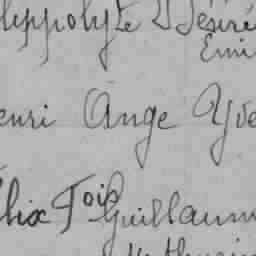 Hippolyte Désiré
Emi
enri Ange Yve
élix Fois Guillaum